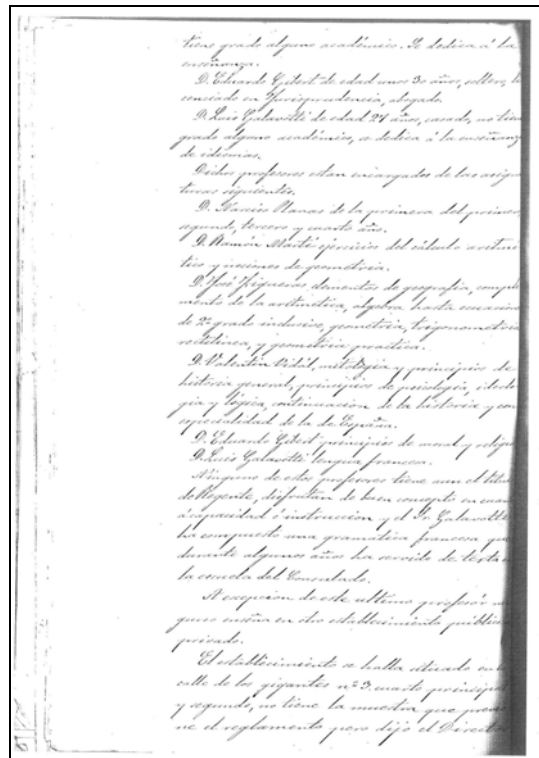 tiene grado alguno académico. Se dedica á la
enseñanza.
D. Eduardo Gibert de edad unos 30 años, soltero, li
cenciado en Jurisprudencia, abogado.
D. Luis Galavotti de edad 24 años, casado, no tiene
grado alguno académico, se dedica á la enseñanz
de idiomas.
Dichos profesores estan encargados de las asigna
turas siguientes.
D. Narciso Planas de la primera del primero
segundo, tercero y cuarto año.
D. Ramón Martí ejercicios del cálculo aritmé
tico y nociones de geometria.
D. José Figueras elementos de geografia, comple
mento de la aritmética, algebra hasta ecuacione
de 2º grado inclusive, geometria, trigonometria
rectilinea, y geometria practica.
D. Valentin Vidál, mitologia y principios de
história general, principios de psicologia, ideolo
gia y lógica, continuacion de la história y con
especialidad de la de España.
D. Eduardo Gibert principios de moral y religio
D. Luis Galavotti lengua francesa.
Ninguno de estos profesores tiene aun el titulo
de Regente, disfrutan de buen concepto en cuan
á capacidad é instruccion y el Sr. Galavotti
ha compuesto una gramática francesa que
durante algunos años ha servido de testo
la escuela del Consulado.
A excepcion de este ultimo profesór ni
guno enseña en otro establecimiento público
privado.
El establecimiento se halla situado en la
calle de los gigantes nº 3. cuarto principal
y segundo, no tiene la muestra que previe
ne el reglamento pero dijo el Director